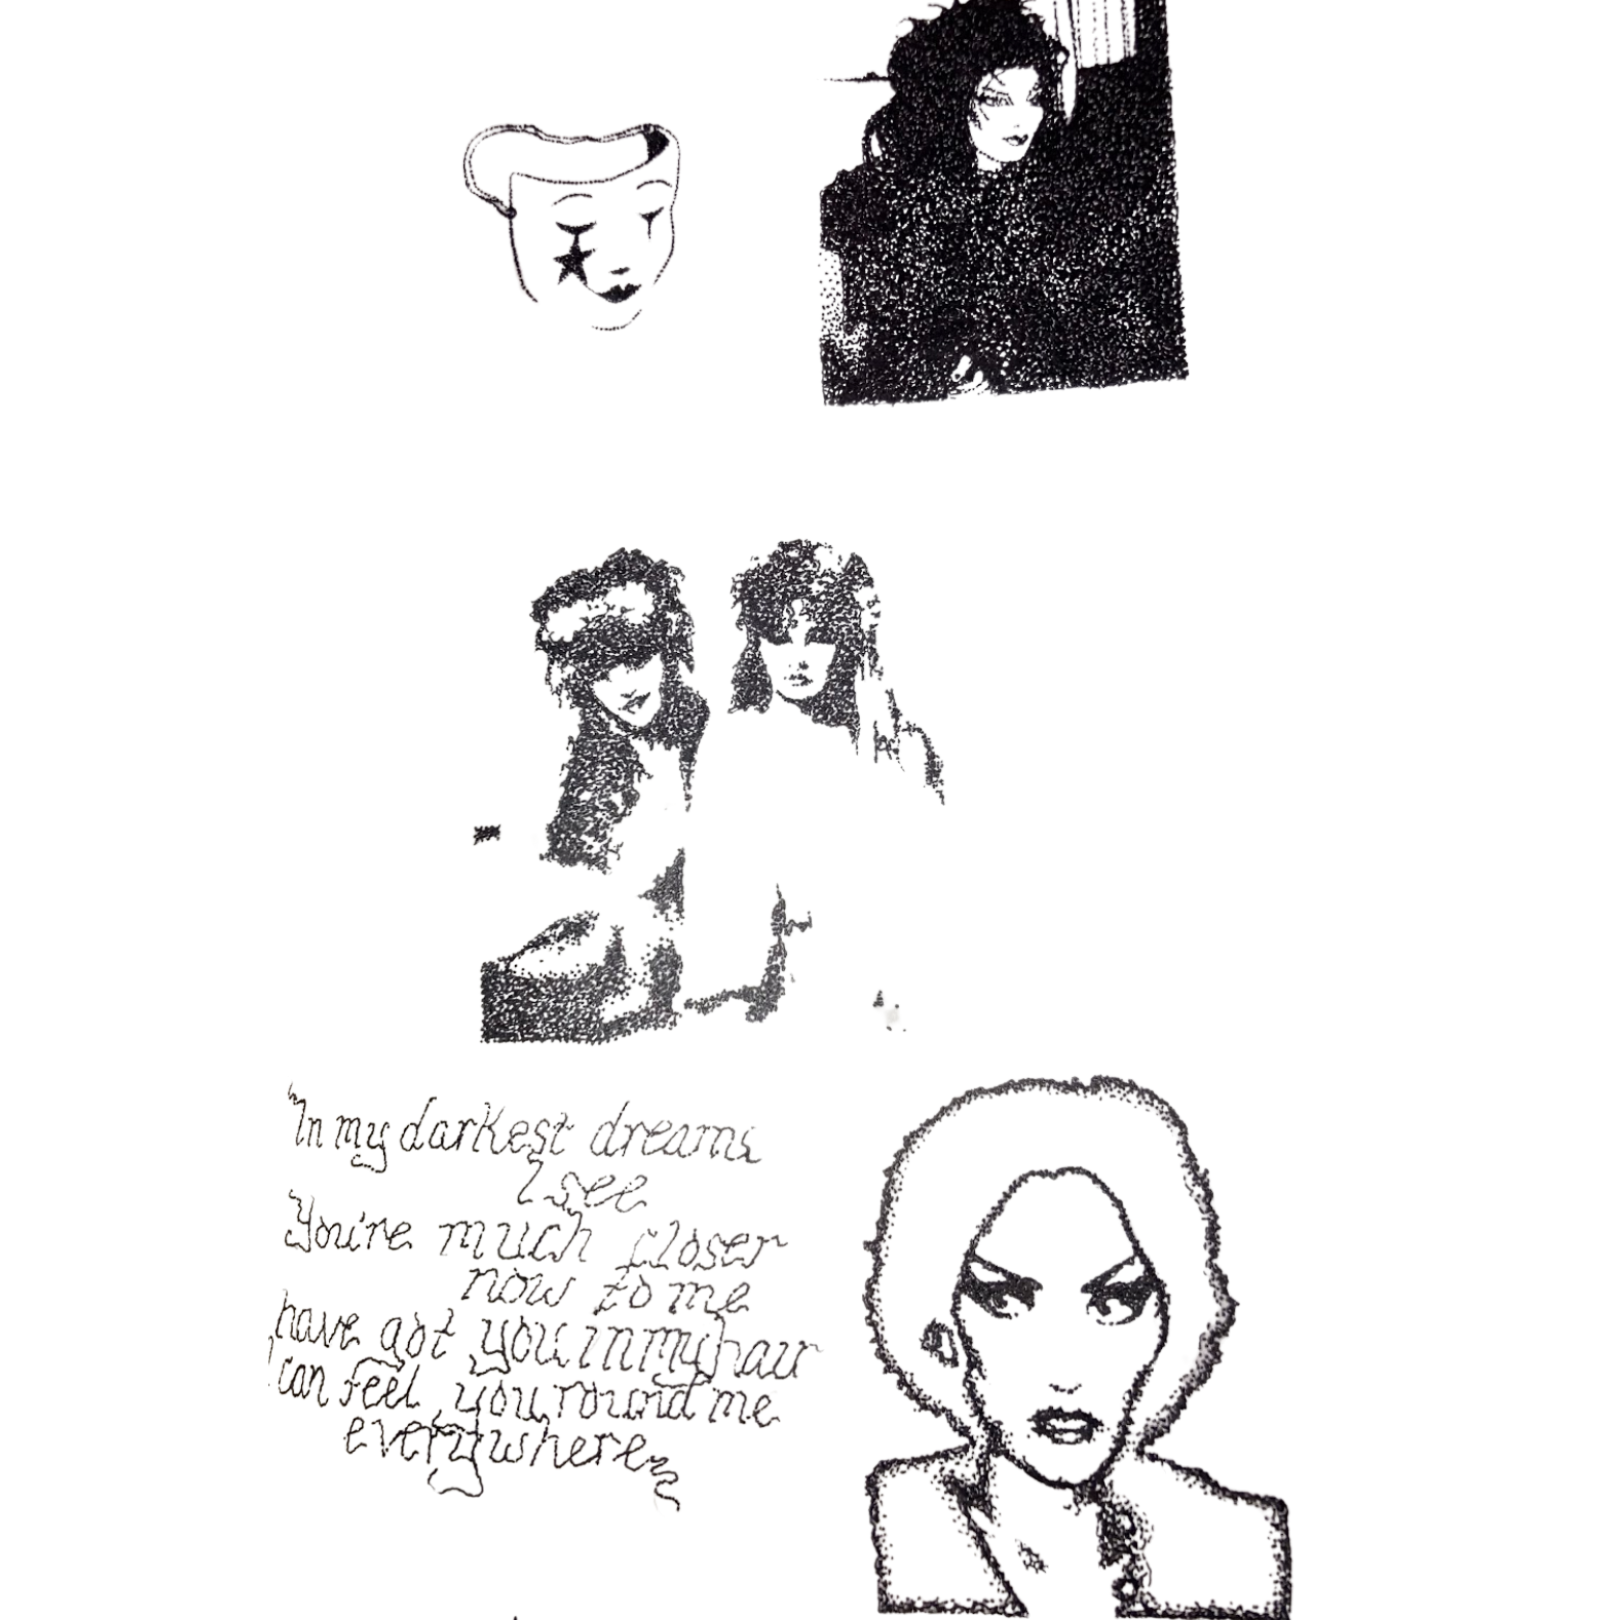 "In my darkest dreams
I see
You're much closer
now to me
have got you in my hair
I can feel you round me
everywhere"